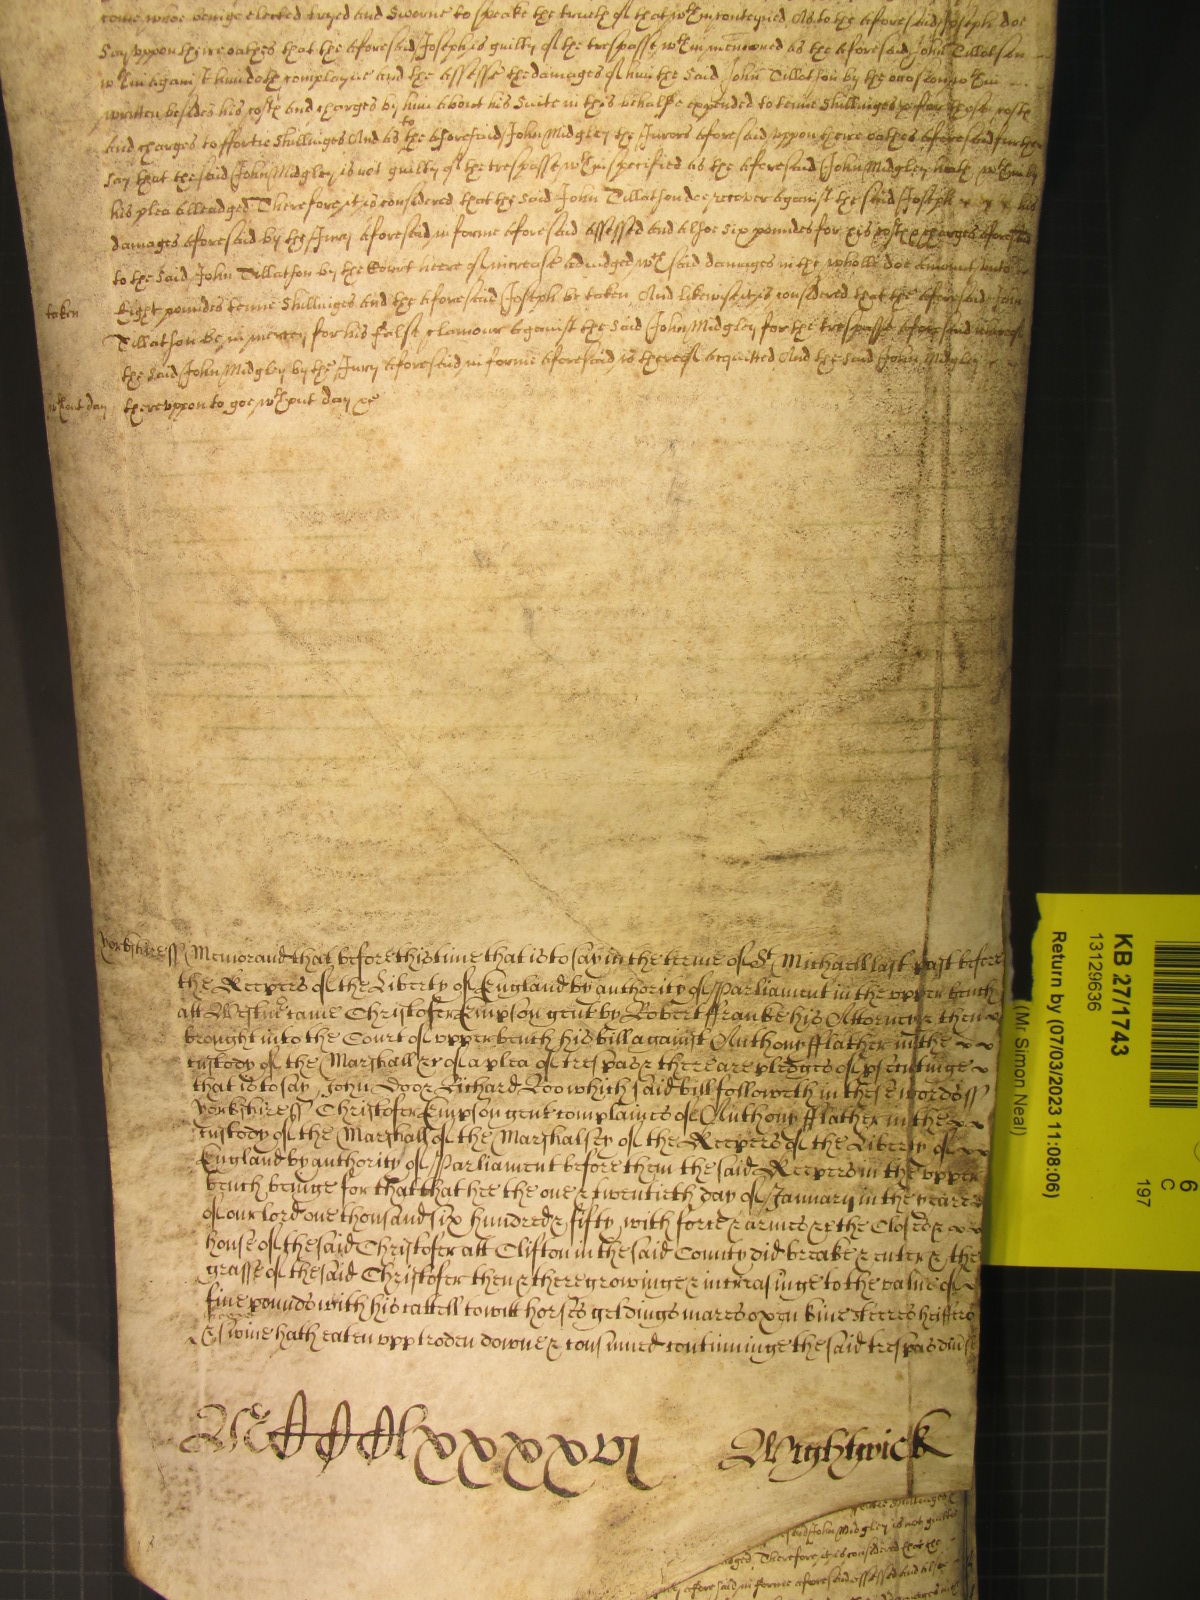 come whoe beinge elected tryed and Sworne to speake the trueth of that wthin conteyned As to the aforesaid Joseph doe
Say vppon theire oathes that the aforesaid Joseph is guilty of the trespasse wthin menconed as the aforesaid John Tillatson
wthin against him doth complayne and the assesse the damages of him the said John Tillatson by the occasion wthin
written besides his costs and charges by him about his Suite in this behalfe expended to tenne Shillinges & for those costs
and charges to ffortie Shillinges And as to the aforesaid John Midgley the Jurors aforesaid vppon theire oathes aforesaid further
Say that the said John Midgley is not guilty of the trespasse wthin specified as the aforesaid John Midgley hath wthin by
his plea alleadged Therefore it is considered that the said John Tillatson doe recover against the said Joseph his
damages aforesaid by the Jury aforesaid in forme aforesaid assessed and alsoe Six poundes for his costs & charges aforesaid
to the said John Tillatson by the Court heere of increase adiudged wch said damages in the wholle doe amount vnto
taken Eight poundes tenne Shillinges And the aforesaid Joseph be taken And likewise it is considered that the aforesaid John
Tillatson be in mercy for his false clamour against the said John Midgley for the trespasse aforesaid whereof
the said John Midgley by the Jury aforesaid in forme aforesaid is thereof acquitted And the said John Midgley
wthout day therevppon to goe wthout day &c
Yorkshire ss Memorand that before this time that is to say in the terme of St Michaell last past before
the Keepers of the Liberty of England by authority of Parliament in the vpper bench
att Westmr came Christofer Empson gent by Robert ffranke his Attorney & then
brought into the Court of vpper bench his bill against Anthony fflather in the
custody of the Marshall &c of a plea of trespas & there are pledges of psecutinge
that is to say John Doo & Richard Roo which said bill followeth in these words ss
Yorkshire ss Christofer Empson gent complaines of Anthony fflather in the
custody of the Marshall of the Marshalsey of the Keepers of the Liberty of
England by authority of Parliament before them the said Keepers in the vpper
bench beinge for that that hee the one & twentieth day of January in the yeare
of our lord one thousand six hundred & fifty with force & armes &c the Closes &
house of the said Christofer att Clifton in the said County did breake & enter & the
grasse of the said Christofer then & there growinge & increasinge to the value of
fiue pounds with his cattell to witt horses geldings mares oxen kine steeres heiffers
& swine hath eaten vpp troden downe & consumed continuinge the said trespas
MDCClxxxxvj Wightwick
said John Midgley is not guiltie
Therefore it is considered that the
aforesaid in forme aforesaid assessed and alsoe
KB 27/1743
13129636
Return by (07/03/2023 11:08:06)
(Mr Simon Neal)
6
C
197